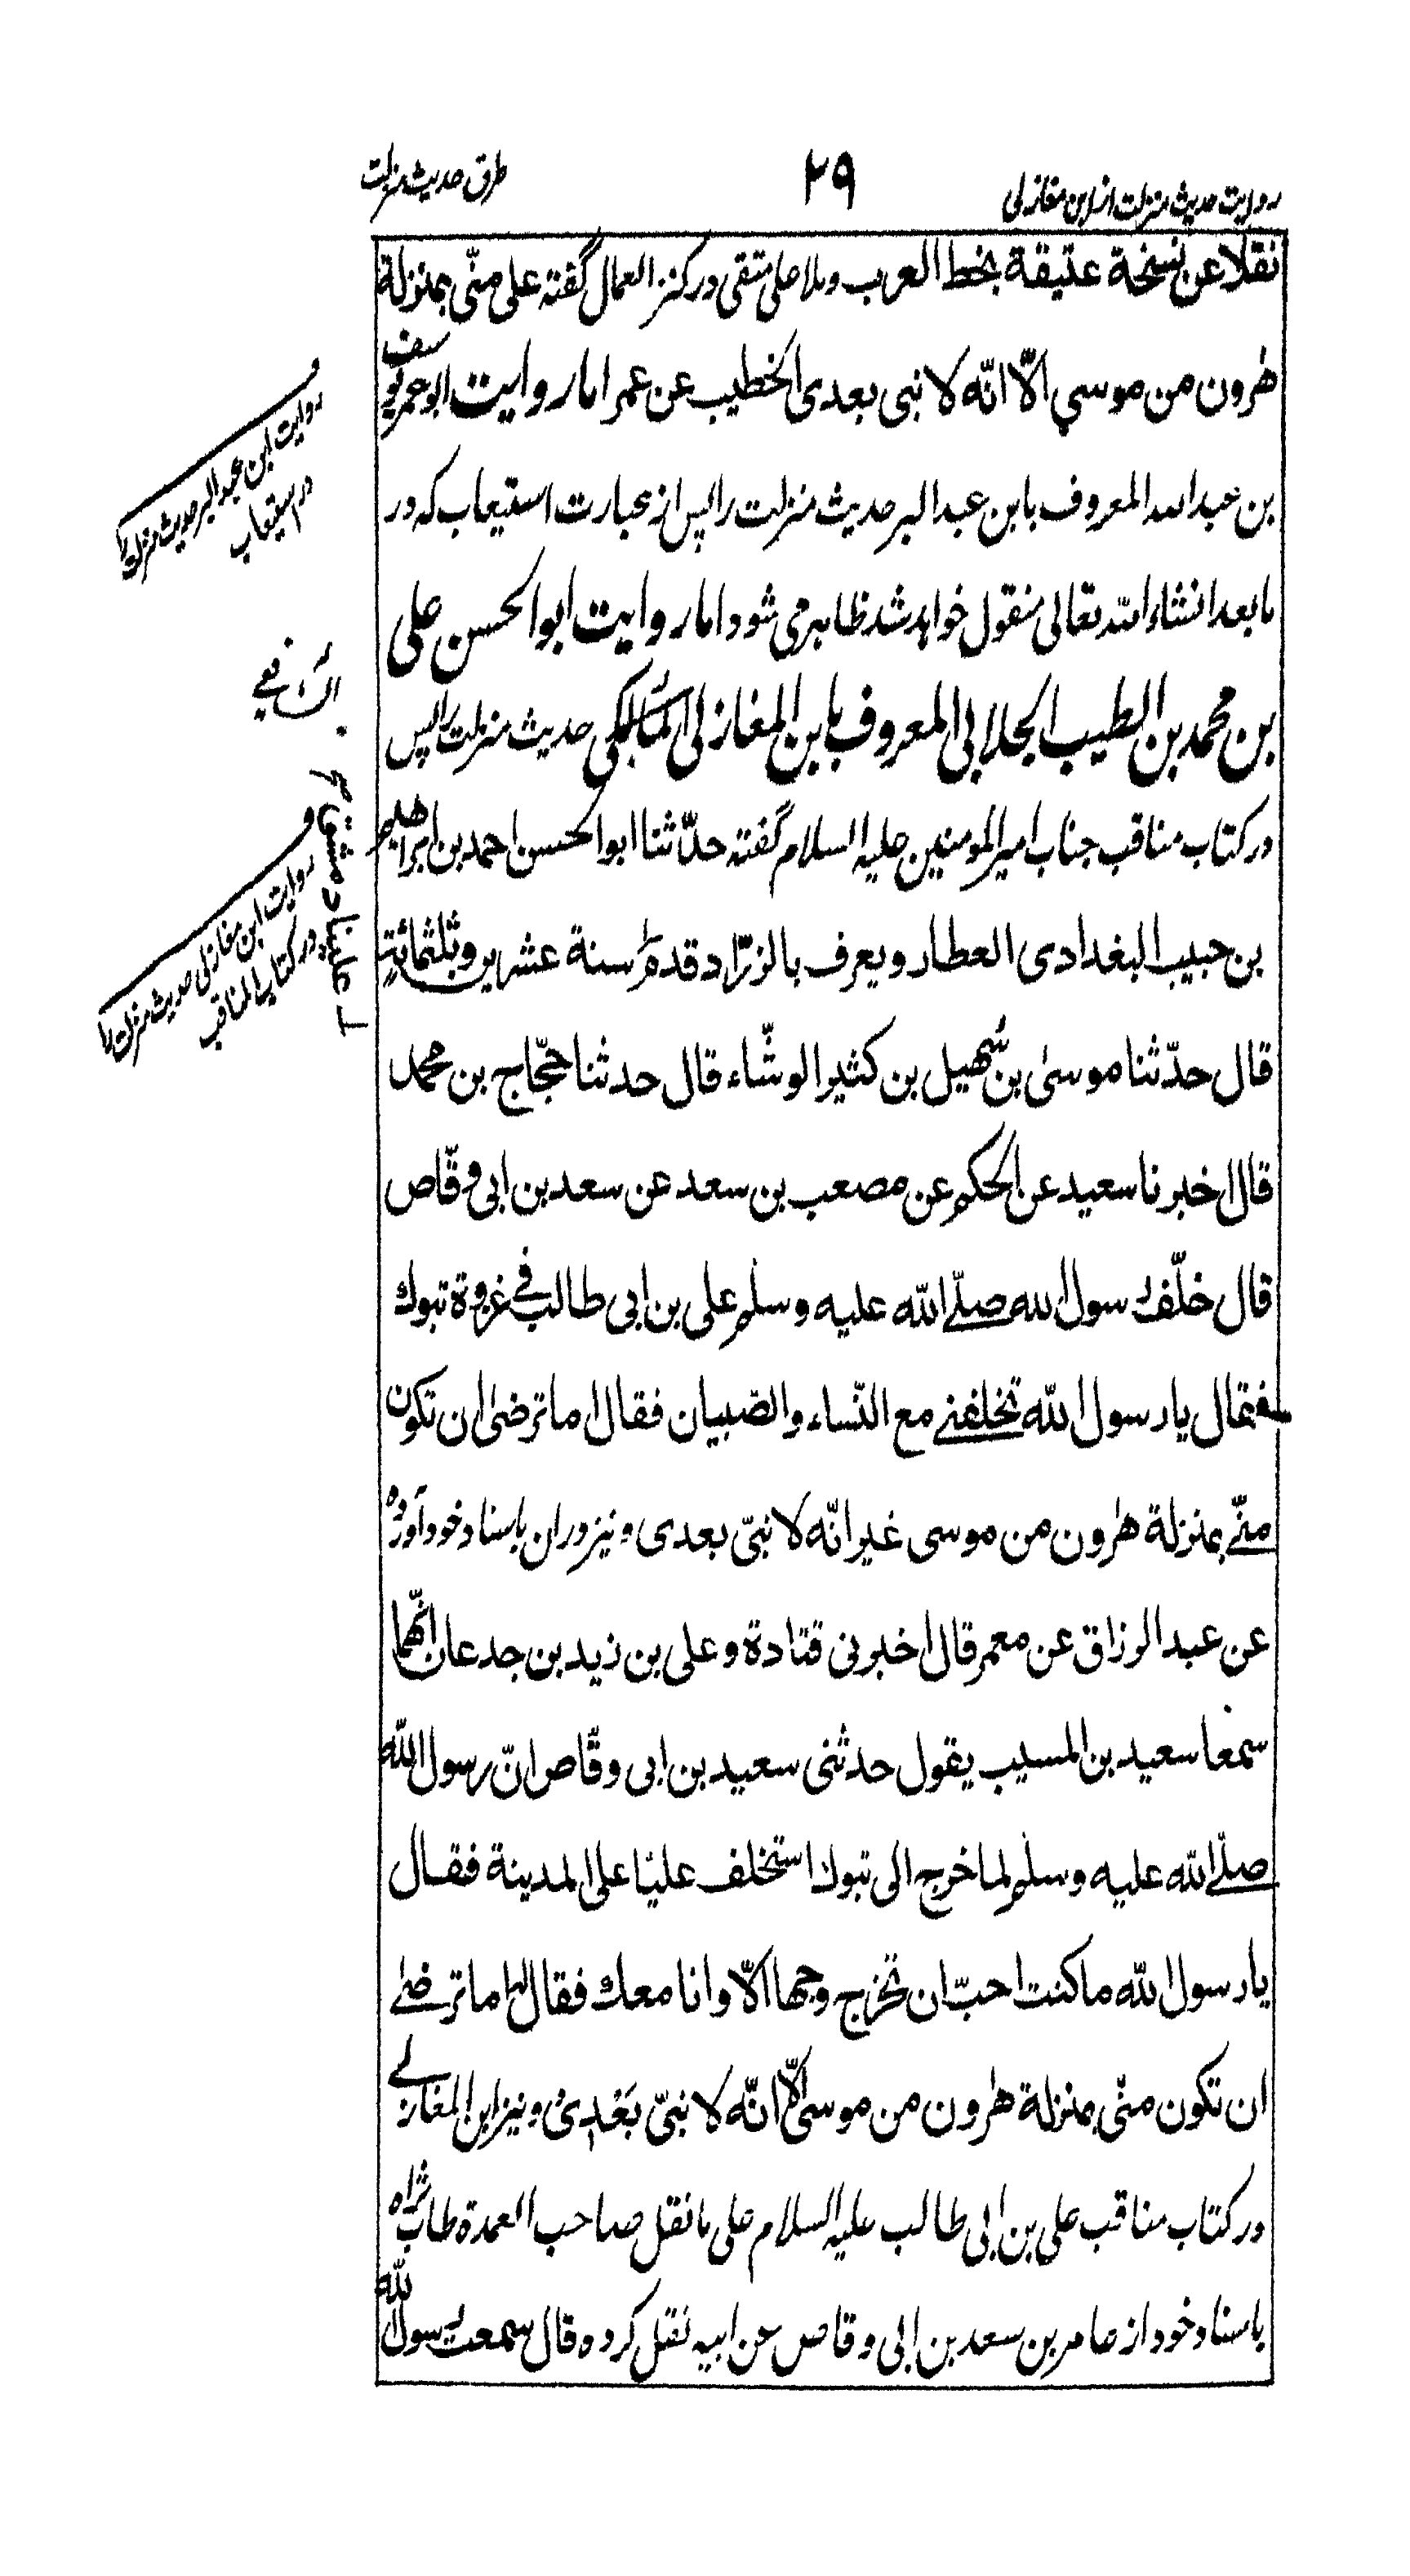 روایت حدیث منزلت از ابن مغازلی
۲۹
طرق حدیث منزلت
نقلا عن نسخة عتیقة بخط العرب وملا علی متقی در کنز العمال گفته علی منّی بمنزلة
هٰرون من موسی الّا انّه لا نبی بعدی الخطیب عن عمر اما روایت ابو عمر یوسف
بن عبد الله المعروف بابن عبد البر حدیث منزلت را پس از عبارت استیعاب که در
ما بعد انشاء الله تعالی منقول خواهد شد ظاهر می شود اما روایت ابو الحسن علی
بن محمد بن الطیب الجلابی المعروف بابن المغازلی المالکی حدیث منزلت را پس
در کتاب مناقب جناب امیر المومنین علیه السلام گفته حدّثنا ابو الحسن احمد بن ابراهیم
بن حبیب البغدادی العطار ویعرف بالزرّاد قدم سنة عشرین وثلثمائة
قال حدّثنا موسیٰ بن سُهیل بن کثیر الوشّاء قال حدثنا حجّاج بن محمد
قال اخبرنا سعید عن الحکم عن مصعب بن سعد عن سعد بن ابی وقّاص
قال خلّف رسول الله صلّی الله علیه وسلم علی بن ابی طالب فی غزوة تبوك
فقال یا رسول اللّه تخلفنی مع النّساء والصّبیان فقال اما ترضیٰ ان تکون
منّی بمنزلة هٰرون من موسی غیر انّه لا نبیّ بعدی ونیز در ان باسناد خود آورده
عن عبد الرزاق عن معمر قال اخبرنی قتادة وعلی بن زید بن جدعان انّهما
سمعا سعید بن المسیب یقول حدثنی سعید بن ابی وقّاص انّ رسول اللّه
صلّی اللّه علیه وسلم لما خرج الی تبوك استخلف علیّا علی المدینة فقال
یا رسول اللّه ما کنت احبّ ان تخرج وجها الّا وانا معك فقال اما ترضیٰ
ان تکون منّی بمنزلة هٰرون من موسیٰ الّا انّه لا نبیّ بَعْدِیْ ونیز ابن المغازلی
در کتاب مناقب علی بن ابی طالب علیه السلام علی ما نقل صاحب العمدة طاب ثراه
باسناد خود از عامر بن سعد بن ابی وقاص عن ابیه نقل کرده قال سمعت رسول اللّه
روایت ابن عبد البر حدیث منزلت را
در استیعاب
الشافعی
علینا دمشق
روایت ابن مغازلی حدیث منزلت را
در کتاب المناقب